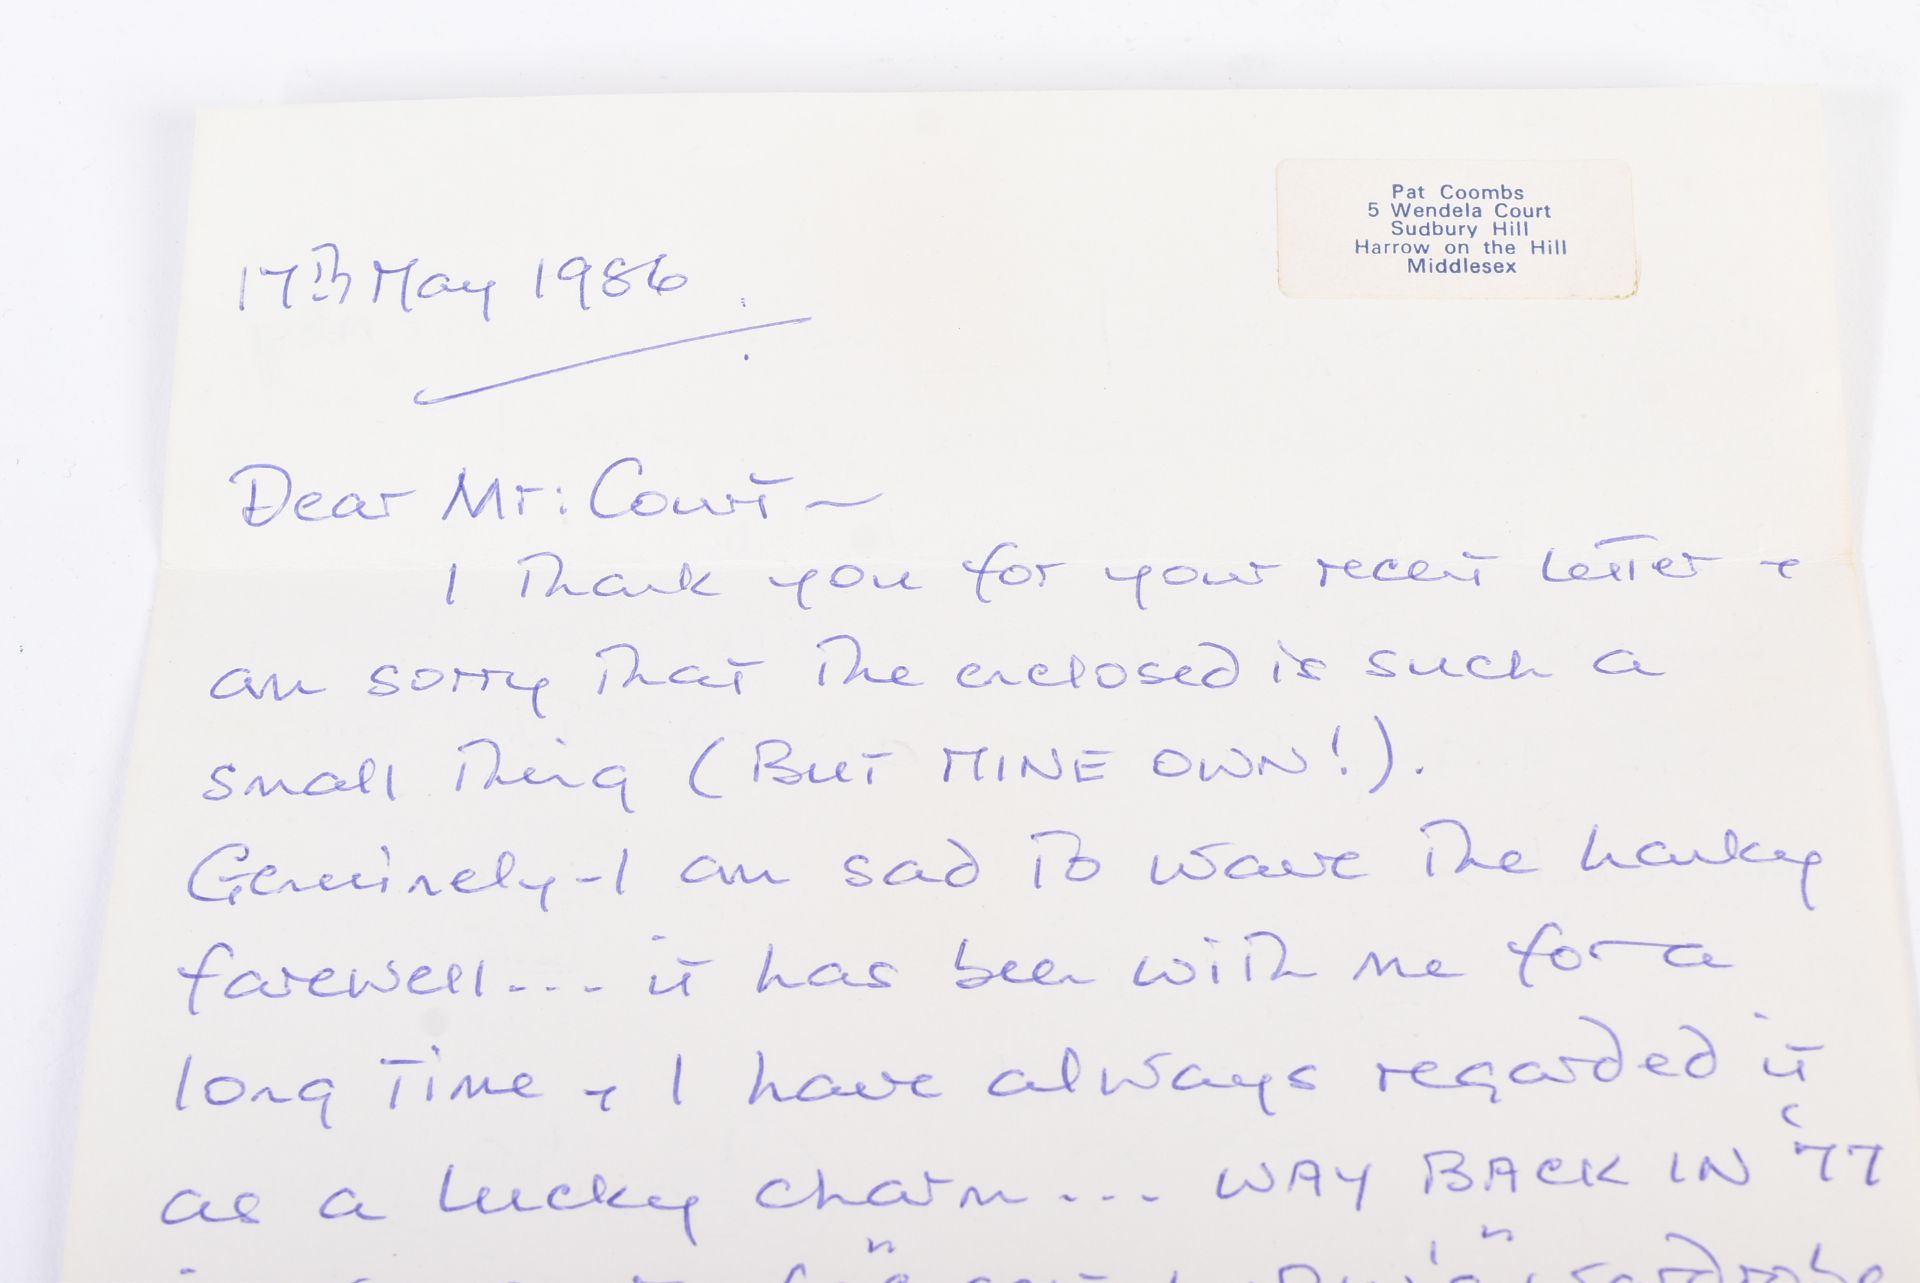 Pat Coombs
5 Wendela Court
Sudbury Hill
Harrow on the Hill
Middlesex
17th May 1986
Dear Mr: Court ~
I thank you for your recent letter +
am sorry that the enclosed is such a
small thing (BUT MINE OWN!).
Genuinely - I am sad to wave the hanky
farewell... it has been with me for a
long time + I have always regarded it
as a lucky charm... WAY BACK IN '77